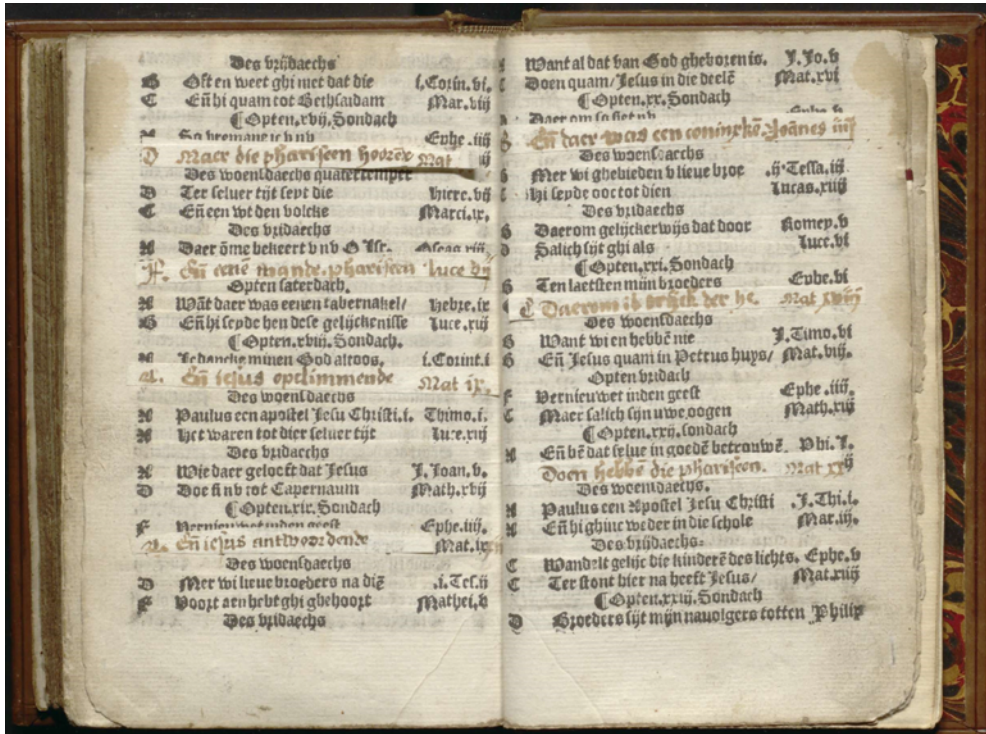 Des vrijdaechs
G Oft en weet ghi niet dat die i.Corin.vi.
C Eñ hi quam tot Bethsaidam Mar.viij
¶ Opten.xvij.Sondach
Ephe.iiij
D Maer die phariseen hoorēde Mat
Des woensdaechs quatertemper
D Ter seluer tijt sept die Hiere.vij
C Eñ een wt den volcke Marci.ix.
Des vridaechs
A Daer ōme bekeert v nv O Isr.
F. Eñ eenē mande.phariseen Luce vij
Opten saterdach.
A Wāt daer was eenen tabernakel/ Hebre.ix
G Eñ hi sepde hen dese gelijckenisse Luce.xiij
¶ Opten.xviij.Sondach.
A Ic dancke minen God altoos. i.Corint.i
A. Eñ iesus opclimmende Mat ix.
Des woensdaechs
A Paulus een apostel Jesu Christi.i. Thimo.i.
A Het waren tot dier seluer tijt Luce.xiij
Des vridaechs
A Wie daer geloeft dat Jesus J.Joan.v.
D Doe si nv tot Capernaum Math.xvij
¶ Opten.xix.Sondach
F Vernieuwet inden geest Ephe.iiij.
A. Eñ iesus antwoordende Mat.ix
Des woensdaechs
D Mer wi lieue broeders na diē .i.Tes.ij
F Voort aen hebt ghi ghehoort Mathei.v
Des vridaechs
Want al dat van God gheboren is. J.Jo.v
Doen quam/Jesus in die deelē Mat.xvi
¶ Opten.xx.Sondach
Daer om so siet nv Ephe.v
Eñ daer was een coninxkē. Joānes iiij
Des woensdaechs
Mer wi ghebieden v lieue broe .ij.Tessa.iij
Hi sepde ooc tot dien Lucas.xiij
Des vridaechs
G Daerom gelijckerwijs dat door Romey.v
D Salich sijt ghi als Luce.vi
¶ Opten.xxi.Sondach
G Ten laetsten mijn broeders Ephe.vi
C Daerom is ghelijck der he. Mat xviij
Des woensdaechs
G Want wi en hebbē nie J.Timo.vi
G Eñ Jesus quam in Petrus huys/ Mat.viij.
Opten vridach
F Vernieuwet inden geest Ephe.iiij.
C Maer salich sijn uwe oogen Math.xiij
¶ Opten.xxij.sondach
A Eñ bē dat selue in goedē betrouwē. Phi.J.
Doen hebbē die phariseen. Mat xxij
Des woensdaechs.
A Paulus een Apostel Jesu Christi .J.Thi.i.
A Eñ hi ghinc weder in die schole Mar.iij.
Des vrijdaechs:
C Wandelt gelijc die kinderē des lichts. Ephe.v
C Ter stont hier na heeft Jesus/ Mat.xiij
¶ Opten.xxiij.Sondach
D Broeders sijt mijn nauolgers totten Philip